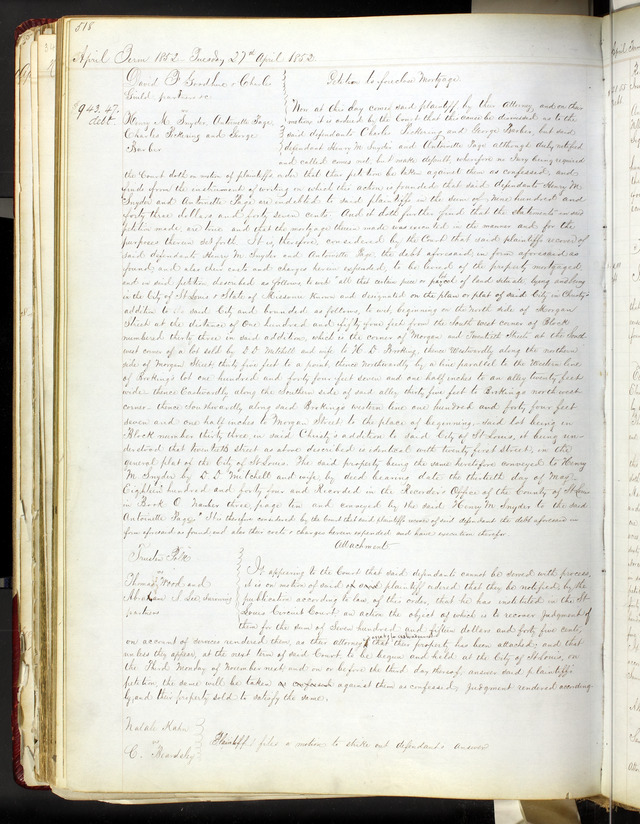 518
April Term 1852. Tuesday 27th April 1852
David B
partners &c
vs
Henry M. Snyder, Antoinette Page,
Charles Pickering and George
Barber
$943.47
debt
Petition to foreclose Mortgage
Now at this day comes said plaintiff by their attorney, and on their
motion it is ordered by the Court that this cause be dismissed as to the
said defendants Charles Pickering and George Barber, but said
defendants Henry M. Snyder and Antoinette Page although duly notified
and called comes not but make default, wherefore no Jury being required
the Court doth on motion of plaintiffs order that their petition be taken against them as confessed, and
finds from the instrument of writing on which this action is founded that said defendants Henry M.
Snyder and Antoinette Page are indebted to said plaintiffs in the sum of nine hundred and
forty three dollars and forty seven cents. And it doth further find that the statements in said
petition made are true and that the mortgage therein made was executed in the manner and for the
purposes therein set forth. It is, therefore, considered by the Court that said plaintiffs recover of
said defendants Henry M. Snyder and Antoinette Page, the debt aforesaid in form aforesaid as
found, and also their costs and charges herein expended, to be levied of the property mortgaged,
and in said petition described as follows, to wit: "all this certain piece or parcel of land situate, lying and being
in the City of St Louis & State of Missouri known and designated on the plan or plat of said City in Christy's
addition to said City and bounded as follows, to wit, beginning on the North side of Morgan
Street at the distance of One hundred and fifty four feet from the South west corner of Block
numbered thirty three in said addition, which is the corner of Morgan and Twentieth Streets at the South
west corner of a lot sold by D D Mitchell and wife to H. D Booking, thence Westwardly along the northern
side of Morgan Street thirty five feet to a point, thence northwardly by a line parallel to the Western line
of Booking's lot one hundred and forty four feet seven and one half inches to an alley twenty feet
wide thence Eastwardly along the Southern side of said alley thirty five feet to Bookings northwest
corner thence Southwardly along said Bookings western line one hundred and forty four feet
seven and one half inches to Morgan Street to the place of beginning, said lot being in
Block number thirty three in said Christy's addition to said City of St Louis, it being un-
derstood that Twentieth Street as above described is identical with twenty first Street, on the
general plat of the City of St Louis. The said property being the same heretofore conveyed to Henry
M Snyder by D. D Mitchell and wife by deed bearing date the thirtieth day of May
Eighteen hundred and forty four and Recorded in the Recorder's Office of the County of St Louis
in Book O. Number three, page ten and conveyed by the said Henry M. Snyder to the said
Antoinette Page." It is therefore considered by the Court that said plaintiffs recover of said defendants the debt aforesaid in
form aforesaid as found and also their costs & charges herein expended and have execution therefor.
Attachment
vs
Thomas Wood and
Abraham S Lee, surviving
partners
It appearing to the Court that said defendants cannot be served with process,
it is on motion of said plaintiff ordered that they be notified, by the
publication according to law of this order, that he has instituted in the St
Louis Circuit Court an action the object of which is to recover judgment of
them for the sum of Seven hundred and fifteen dollars and forty five cents,
on account of services rendered them, as their attorney, that their property has been attached, and that
unless they appear, at the next term of said Court to be begun and held at the City of St Louis, on
the Third Monday of November next and on or before the third day thereof, answer said plaintiff's
petition, the same will be taken as confessed against them as confessed, judgment rendered according-
ly, and their property sold to satisfy the same.
Kahn
vs
C. Beardsley
Plaintiff files a motion to strike out defendants answer